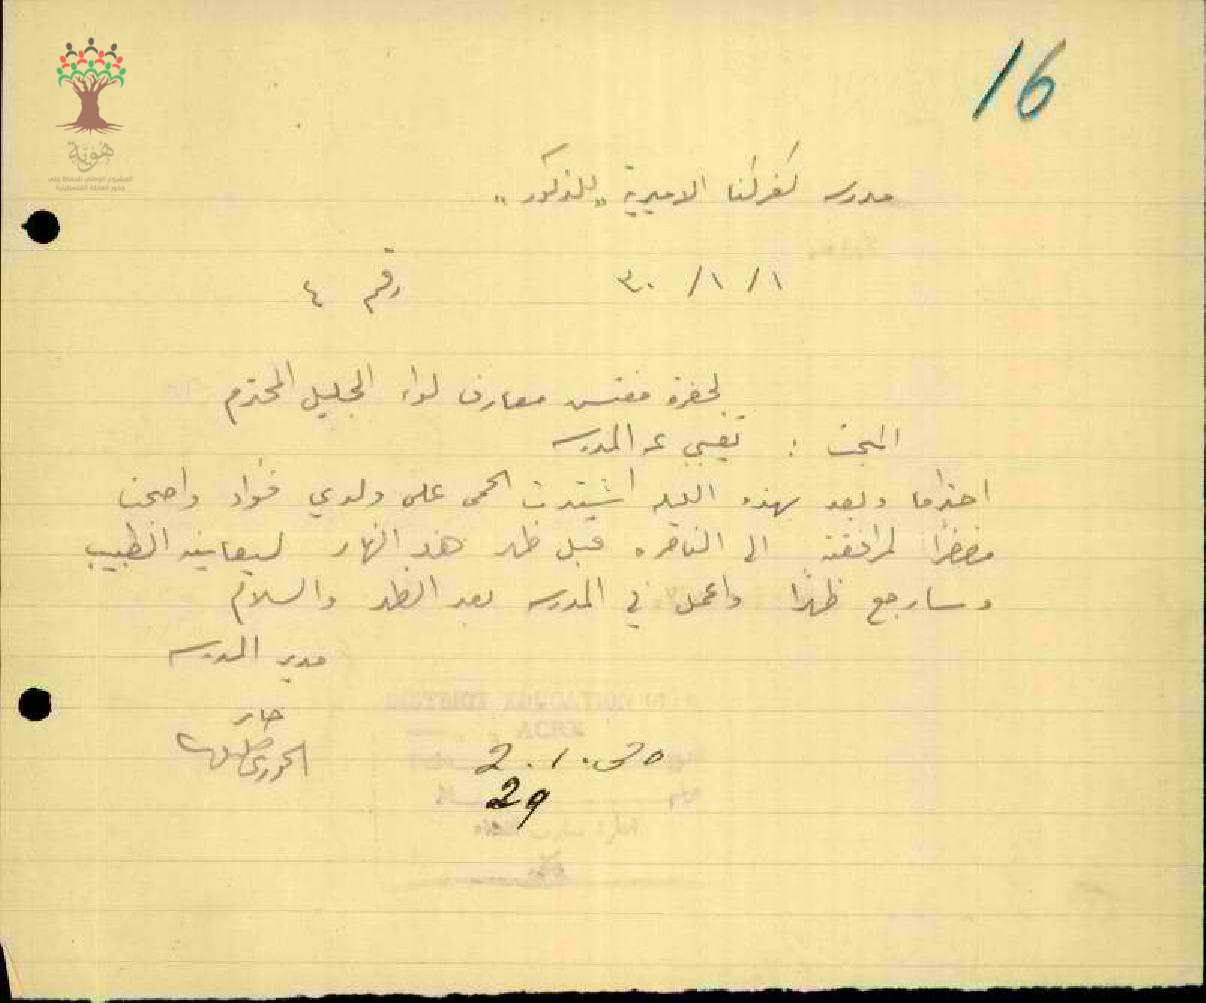 16
هوية
المشروع الوطني للحفاظ على
جذور العائلة الفلسطينية
مدرسة كفركنا الاميرية „للذكور"
١/ ١/ ٣٠ رقم ٤
لحضرة مفتش معارف لواء الجليل المحترم
المبحث : تغيبي عن المدرسه
احتراما وبعد بهذه الليله اشتدت الحمى على ولدي فؤاد واصبحت
مضطراً لمرافقته الى الناصره قبل ظهر هذا النهار ليعاينه الطبيب
وسارجع ظهراً واعمل في المدرسه بعد الظهر والسلام
مدير المدرسه
الخوري
2.1.30
29
DISTRICT EDUCATION
ACRE